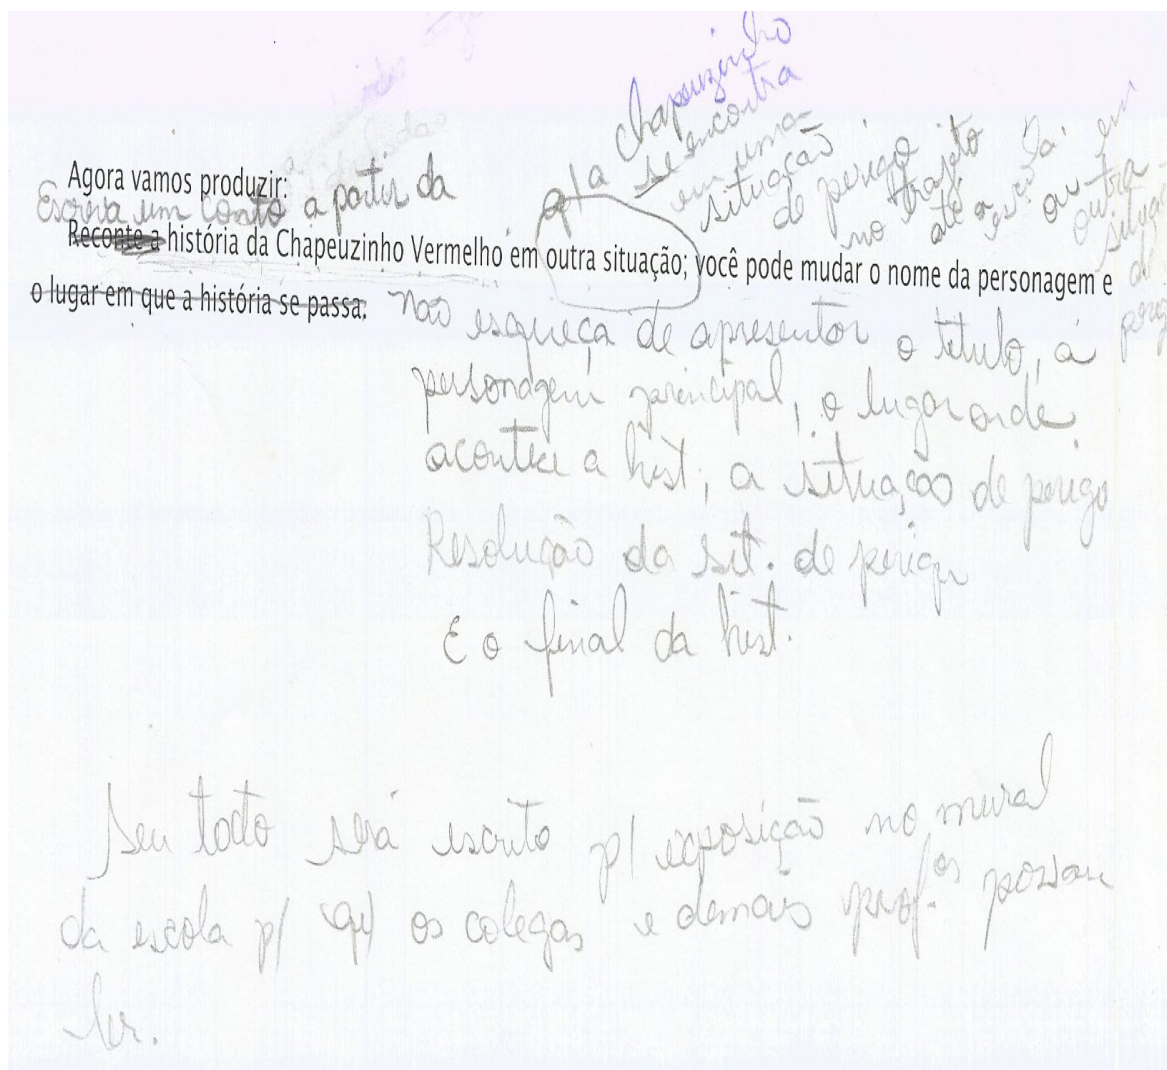 Agora vamos produzir:
Escreva um conto a partir da
Reconte a história da Chapeuzinho Vermelho em outra situação; você pode mudar o nome da personagem e
o lugar em que a história se passa.
a Chapeuzinho
se encontra
em uma
situação
de perigo
no trajeto
até a
ou
outra
situa
de
perig
Não esqueça de apresentar o título, a
personagem principal, o lugar onde
acontece a hist, a situação de perigo
Resolução da sit. de perigo
E o final da hist.
Seu texto será escrito p/ exposição no mural
da escola p/ q os colegas e demais prof.os possam
ler.